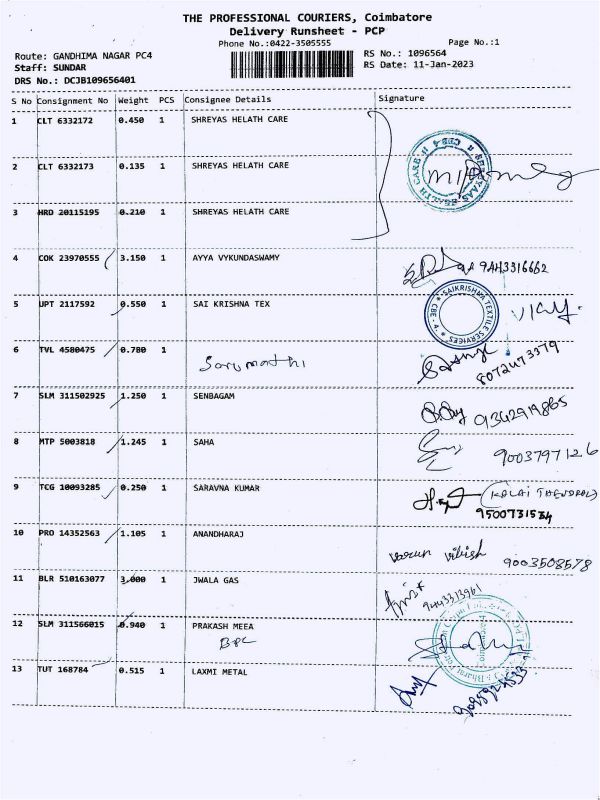 THE PROFESSIONAL COURIERS, Coimbatore
Delivery Runsheet - PCP
Phone No.:0422-3505555
Page No.:1
Route: GANDHIMA NAGAR PC4
RS No.: 1096564
Staff: SUNDAR
RS Date: 11-Jan-2023
DRS No.: DCJB109656401
S No Consignment No Weight PCS Consignee Details Signature
1 CLT 6332172 0.450 1 SHREYAS HELATH CARE
2 CLT 6332173 0.135 1 SHREYAS HELATH CARE
3 HRD 20115195 0.210 1 SHREYAS HELATH CARE
4 COK 23970555 3.150 1 AYYA VYKUNDASWAMY
5 UPT 2117592 0.550 1 SAI KRISHNA TEX
SAIKRISHNA TEXTILE SERVICES
CBE - 4
6 TVL 4580475 0.780 1 Sarumathi
8072473379
7 SLM 311502925 1.250 1 SENBAGAM
9342919865
8 MTP 5003818 1.245 1 SAHA
9003797126
9 TCG 10093285 0.250 1 SARAVNA KUMAR
9500731534
10 PRO 14352563 1.105 1 ANANDHARAJ
varun 9003508578
11 BLR 510163077 3.000 1 JWALA GAS
9443313961
12 SLM 311566015 0.940 1 PRAKASH MEEA
BPC
13 TUT 168784 0.515 1 LAXMI METAL